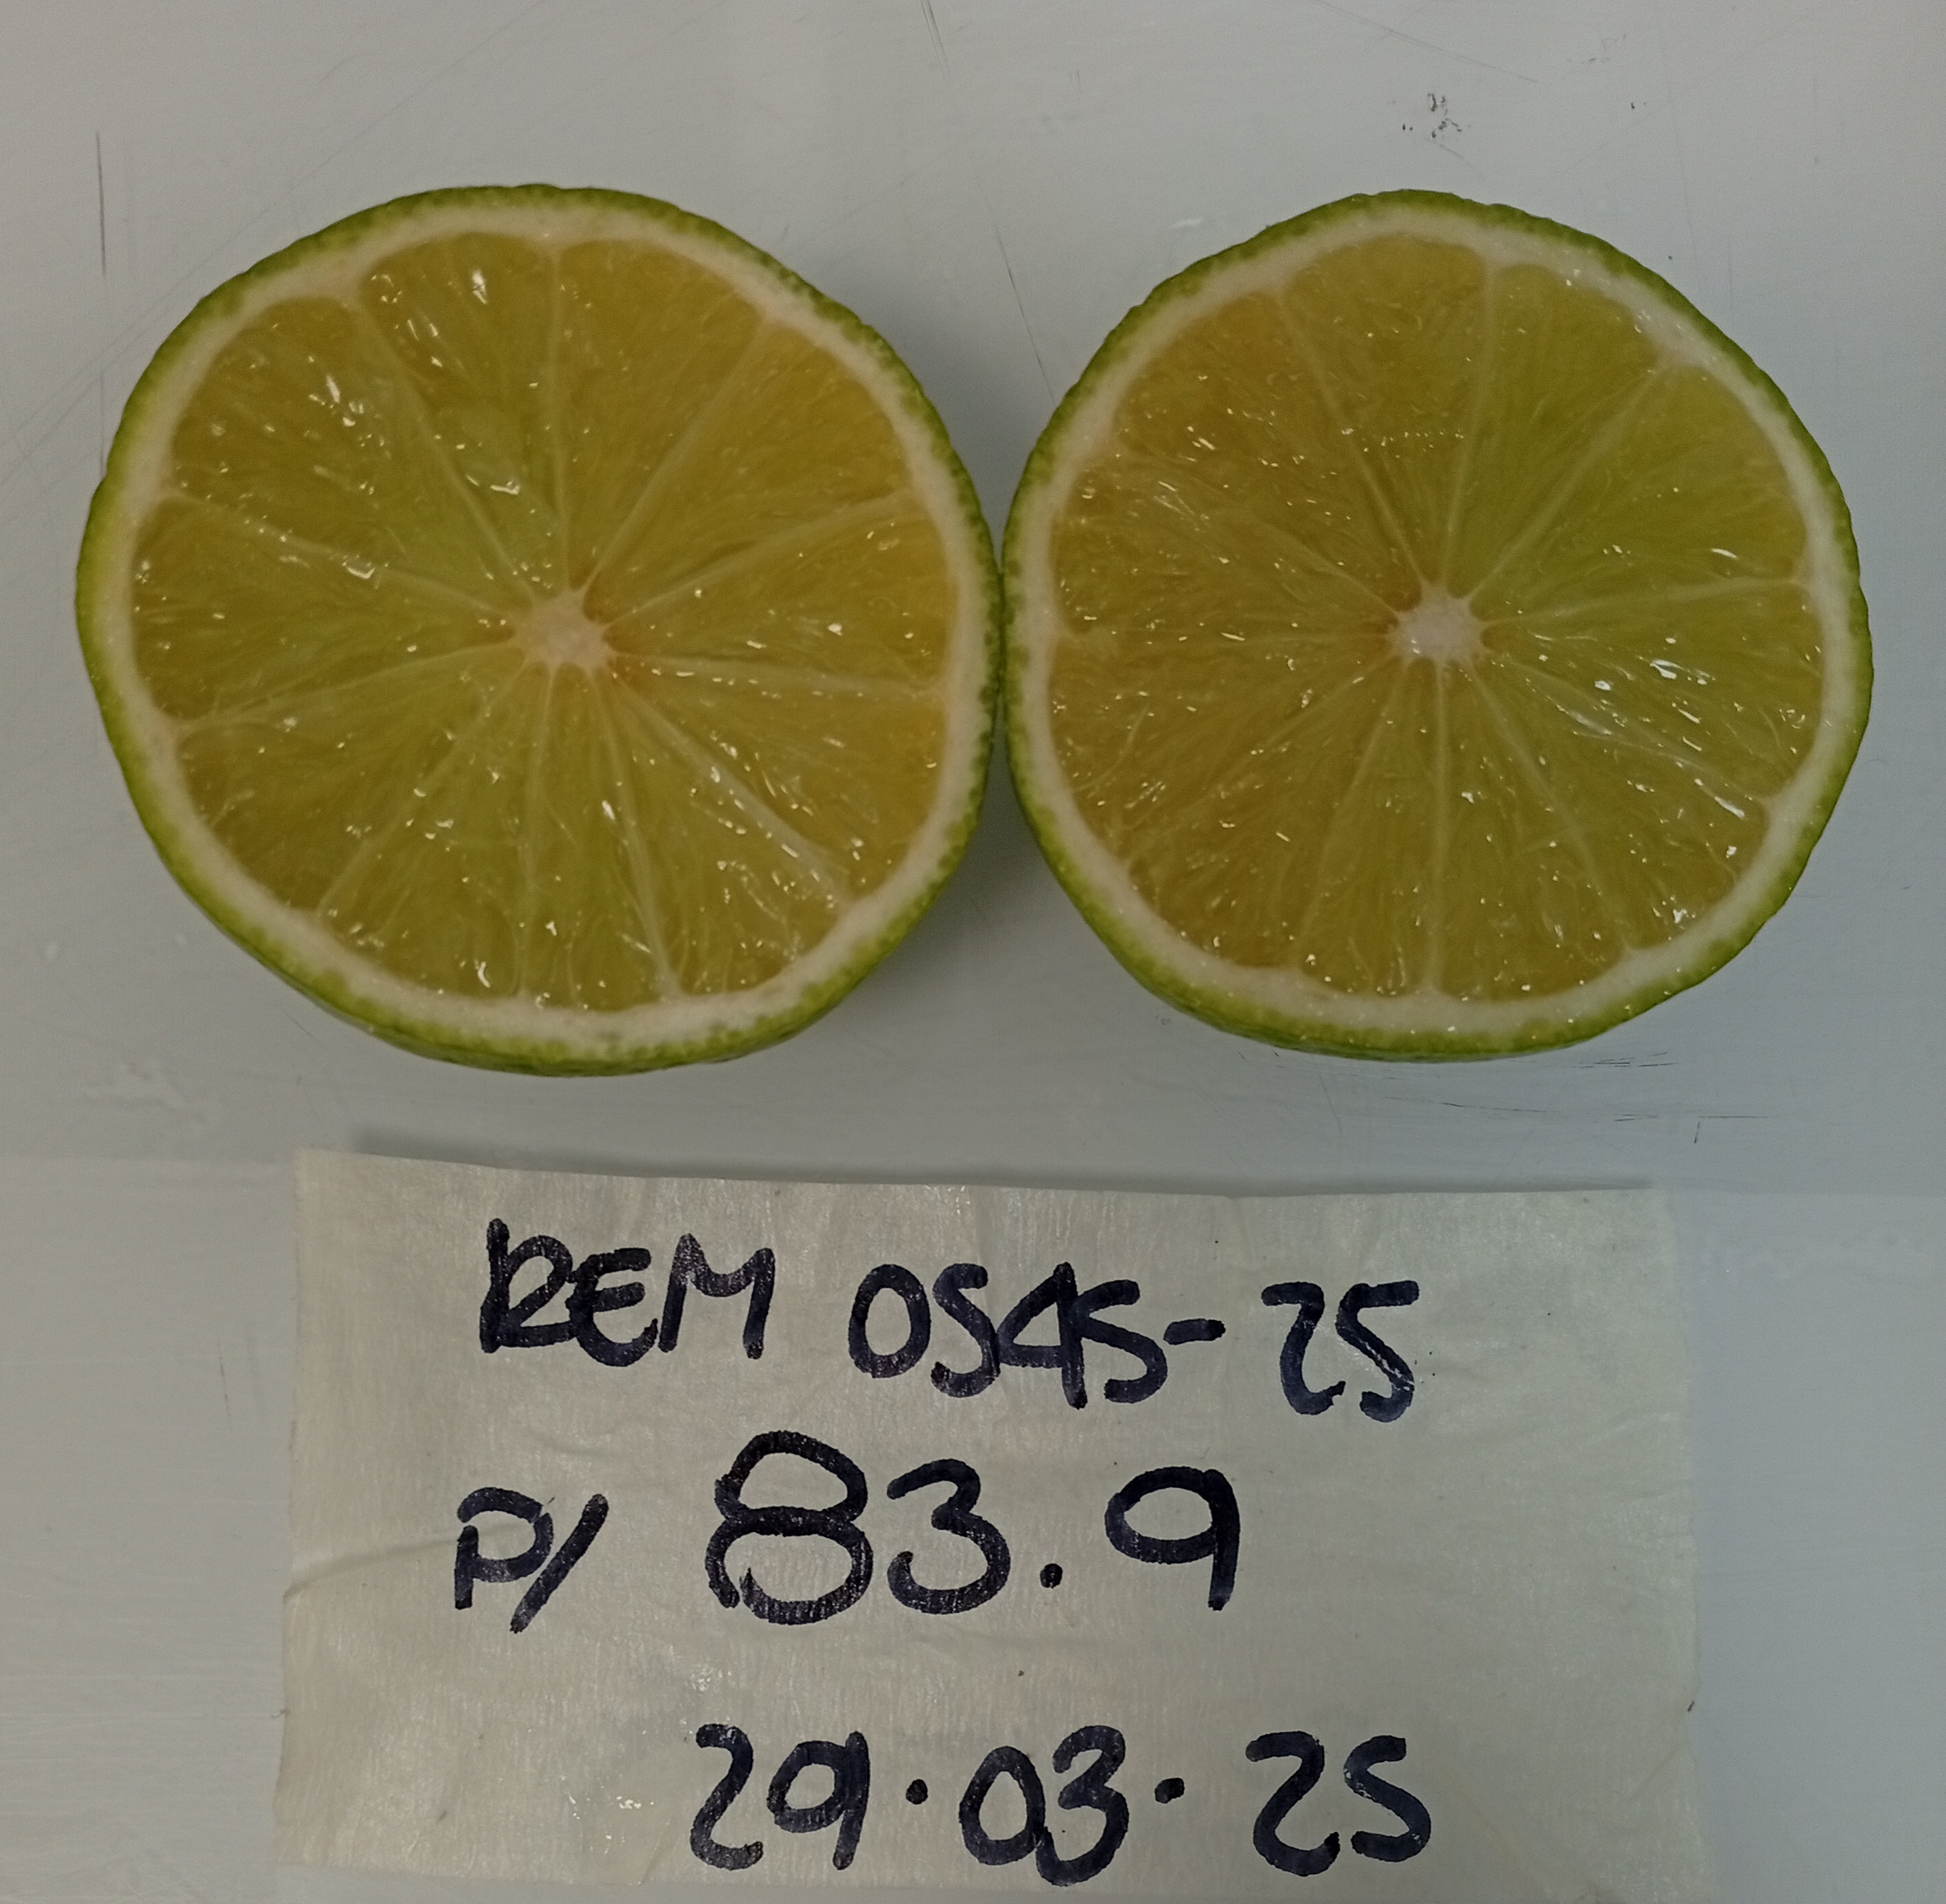 REM 0545-25
P/ 83.9
29.03.25